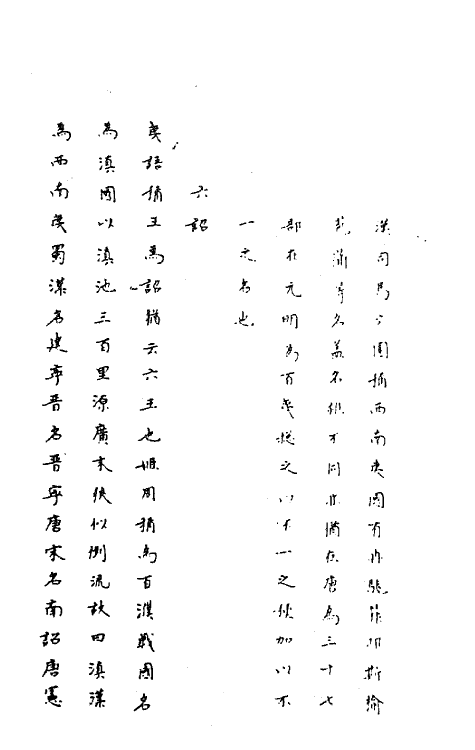 漢司馬 稱西南夷國有冉駹筰邛斯榆
苞蒲等名蓋名雖不同亦猶在唐為三十七
部在元明為百夷總之以不一之狄加以不
一之名也
六詔
夷語稱王為詔猶云六王也姬周稱為百濮戰國名
為滇國以滇池三百里源廣末狹似倒流故曰滇漢
為西南夷蜀漢名建寧晉名晉寧唐宋名南詔唐憲